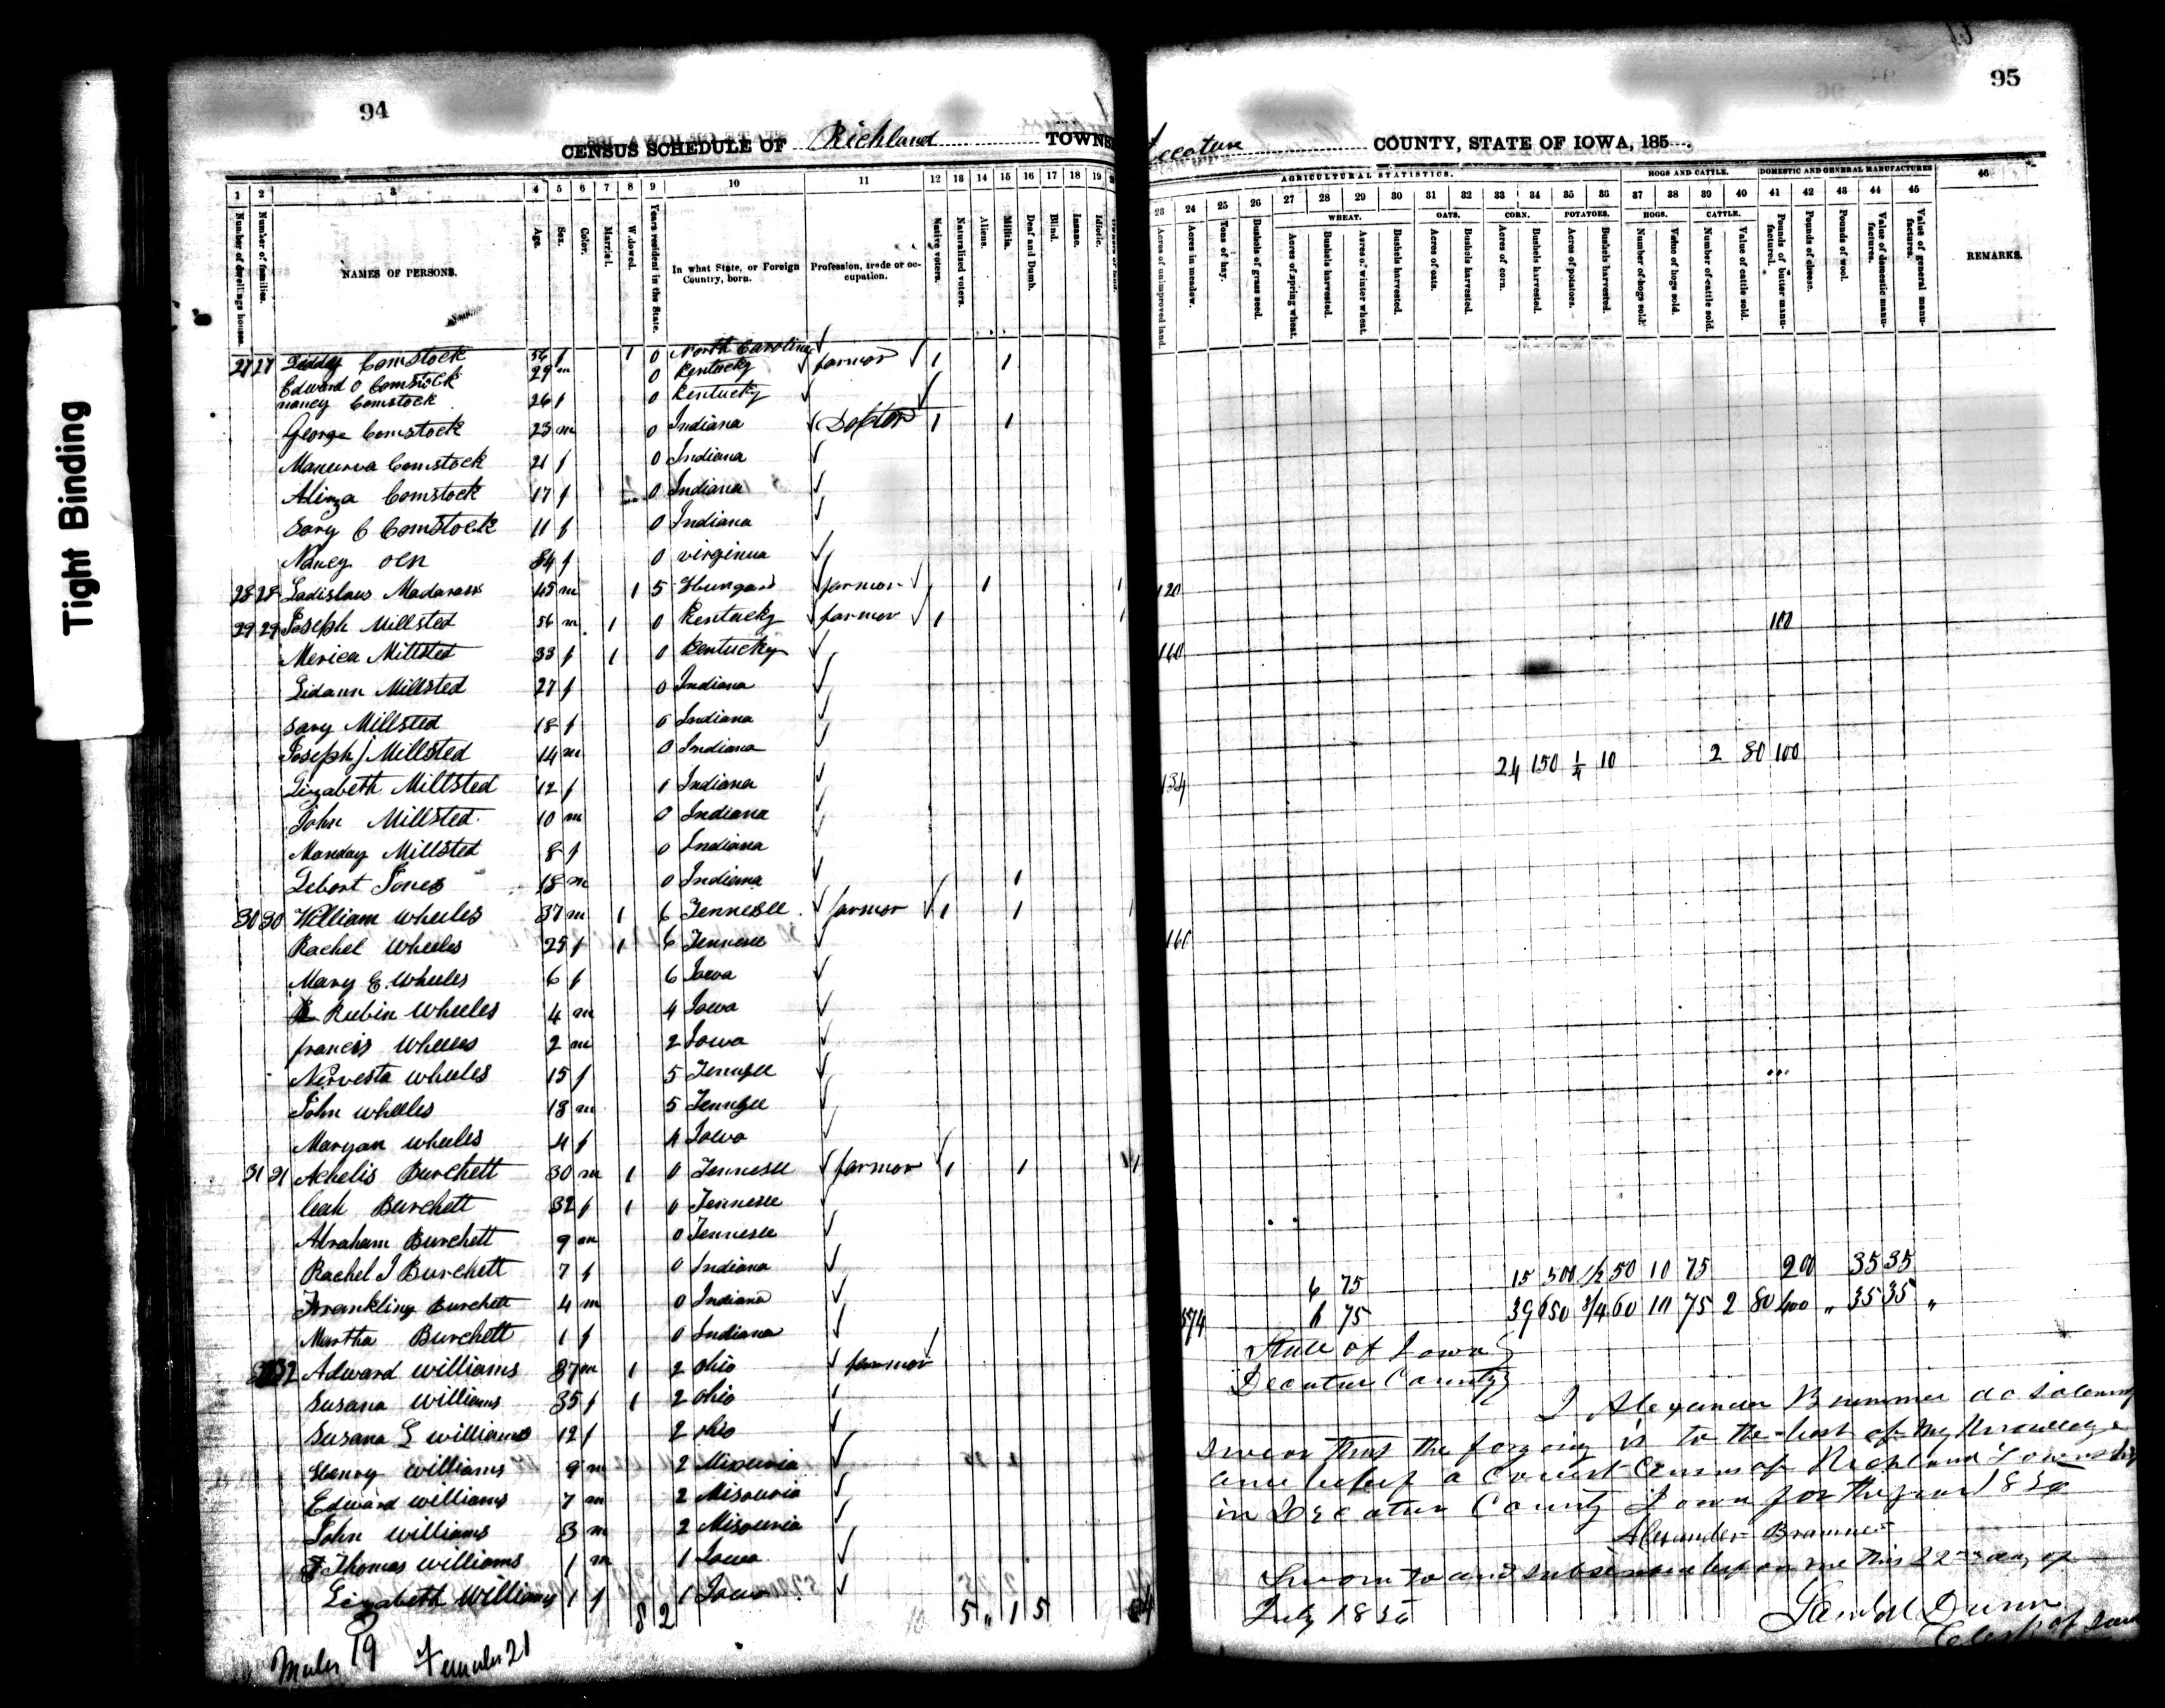 Tight Binding
94
CENSUS SCHEDULE OF Richland TOWNS
1 2 3 4 5 6 7 8 9 10 11 12 13 14 15 16 17 18 19
Number of dwellings houses. Number of families. NAMES OF PERSONS. Age. Sex. Color. Married. Widowed. Years resident in the State. In what State, or Foreign Country, born. Profession, trade or occupation. Native voters. Naturalized voters. Aliens. Militia. Deaf and Dumb. Blind. Insane. Idiotic.
27 27 Liddy Comstock 56 f 1 0 North Carolina
Edward O Comstock 29 m 0 Kentucky farmor 1 1
nancy Comstock 26 f 0 Kentucky
George Comstock 23 m 0 Indiana Doctor 1 1
Manurva Comstock 21 f 0 Indiana
Alinza Comstock 17 f 0 Indiana
Sary C Comstock 11 f 0 Indiana
Nancy Oen 84 f 0 virginua
28 28 Ladislaus Madarass 45 m 1 5 Hungard farmor 1 1
29 29 Joseph Millsted 56 m 1 0 Kentucky farmor 1 1
Merica Millsted 33 f 1 0 Kentucky
Lidann Millsted 27 f 0 Indiana
Sary Millsted 18 f 0 Indiana
Joseph J Millsted 14 m 0 Indiana
Lizabeth Millsted 12 f 1 Indiana
John Millsted 10 m 0 Indiana
Manday Millsted 8 f 0 Indiana
Lebort Jones 18 m 0 Indiana 1
30 30 William Wheeles 37 m 1 6 Tennesee farmor 1 1
Rachel Wheeles 25 f 1 6 Tennesee
Mary E. Wheeles 6 f 6 Iowa
Rubin Wheeles 4 m 4 Iowa
francis Wheeles 2 m 2 Iowa
Nirvesta wheeles 15 f 5 Tennesee
John wheeles 18 m 5 Tennesee
Maryan wheeles 4 f 4 Iowa
31 31 Achelis Burchett 30 m 1 0 Tennesee farmor 1 1 1
Leah Burchett 32 f 1 0 Tennesee
Abraham Burchett 9 m 0 Tennesee
Rachel J Burchett 7 f 0 Indiana
Frankling Burchett 4 m 0 Indiana
Martha Burchett 1 f 0 Indiana
32 32 Adward williams 37 m 1 2 ohio farmor
Susana williams 35 f 1 2 ohio
Susana L williams 12 f 2 ohio
Henry williams 9 m 2 Misouria
Edward williams 7 m 2 Misouria
John williams 3 m 2 Misouria
Thomas williams 1 m 1 Iowa
Lizabeth Williams 1 f 1 Iowa
8 2 5 " 1 5
Males 19 Females 21
95
Decatur COUNTY, STATE OF IOWA, 185
AGRICULTURAL STATISTICS. HOGS AND CATTLE. DOMESTIC AND GENERAL MANUFACTURES
23 24 25 26 27 28 29 30 31 32 33 34 35 36 37 38 39 40 41 42 43 44 45 46
WHEAT. OATS. CORN. POTATOES. HOGS. CATTLE.
Acres of unimproved land. Acres in meadow. Tons of hay. Bushels of grass seed. Acres of spring wheat. Bushels harvested. Acres of winter wheat. Bushels harvested. Acres of oats. Bushels harvested. Acres of corn. Bushels harvested. Acres of potatoes. Bushels harvested. Number of hogs sold. Value of hogs sold. Number of cattle sold. Value of cattle sold. Pounds of butter manufactured. Pounds of cheese. Pounds of wool. Value of domestic manufactures. Value of general manufactures. REMARKS.
120
100
160
24 150 1/4 10 2 80 100
134
160
6 75 15 500 1/2 50 10 75 200 35 35
574 6 75 39 650 3/4 60 10 75 2 80 400 " 35 35 "
State of Iowa
Decatur County
I Alexander Brammer do solemnly
swear that the forgoing is to the best of My Knowledge
and belief a Correct Census of Richland Township
in Decatur County Iowa for the year 1856
Alexander Brammer
Sworn to and subscribed before me this 22nd day of
July 1856
Dunn
Clerk of